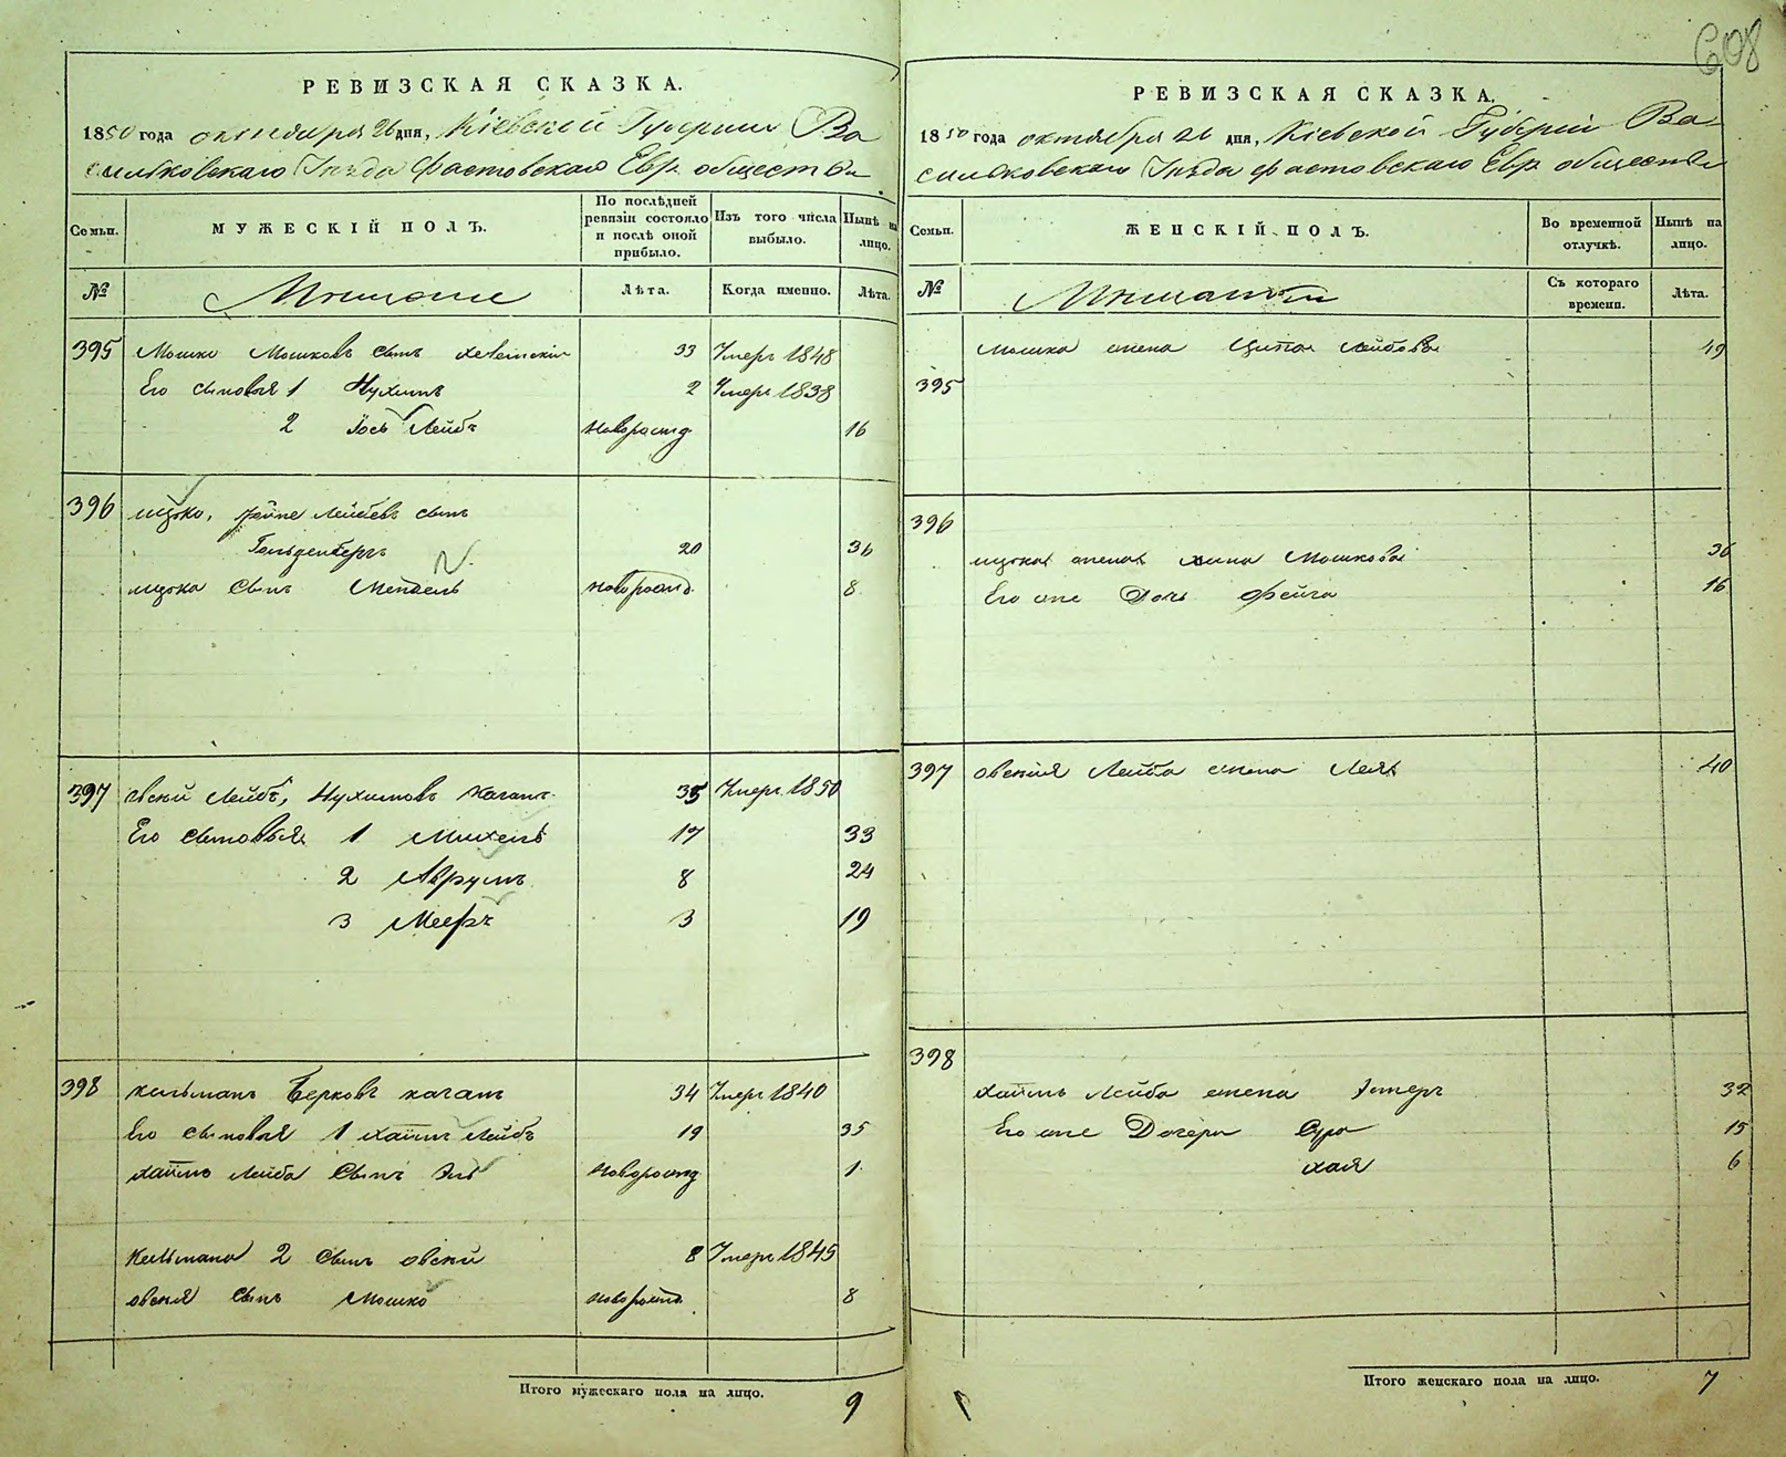 608
РЕВИЗСКАЯ СКАЗКА.
1850 года октября 26 дня, Кіевской Губерніи Ва
сильковскаго Уезда Фастовскаго Евр. общества
Семьи.
МУЖЕСКІЙ ПОЛЪ.
По послѣдней ревизіи состояло и послѣ оной прибыло.
Изъ того числа выбыло.
Нынѣ на лицо.
№
Мѣщане
Лѣта.
Когда именно.
Лѣта.
395 Мошко Мошковъ сынъ 33 Умеръ 1848
Его сыновья 1 Нухимъ 2 Умеръ 1838
2 Йось Лейбъ новорожд 16
396 Ицко, Лейбевъ сынъ
Гольденбергъ 20 36
Ицка сынъ Мендель новорожд. 8
397 Овсий Лейбъ, Нухимовъ Каганъ 35 Умеръ 1850
Его сыновья 1 Михель 17 33
2 Аврумъ 8 24
3 Мееръ 3 19
398 Кельманъ Берковъ Каганъ 34 Умеръ 1840
Его сыновья 1 Хаимъ Лейбъ 19 35
Хаимъ Лейба сынъ новорожд 1
Кельмана 2 сынъ Овсий 8 Умеръ 1845
Овсия сынъ Мошко новорожд 8
Итого мужескаго пола на лицо. 9
РЕВИЗСКАЯ СКАЗКА.
1850 года октября 26 дня, Кіевской Губерніи Ва-
сильковскаго Уезда Фастовскаго Евр. общества
Семьи.
ЖЕНСКІЙ ПОЛЪ.
Во временной отлучкѣ.
Нынѣ на лицо.
№
Мѣщанки
Съ котораго времени.
Лѣта.
Мошка жена Ципа Лейбова 49
395
396
Ицка жена Хина Мошкова 36
Его же Дочь Фейга 16
397 Овсия Лейба жена Лея 40
398
Хаимъ Лейба жена Эстеръ 32
Его же Дочери Сура 15
Хая 6
Итого женскаго пола на лицо. 7